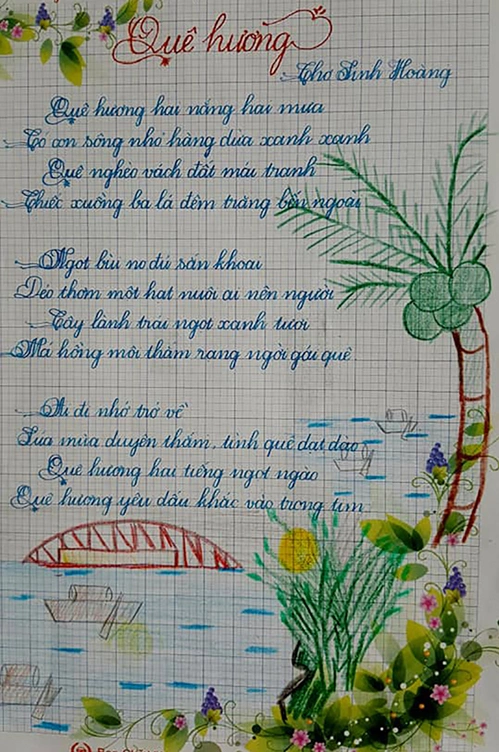 Quê hương
Thơ Sinh Hoàng
Quê hương hai nắng hai mưa
Có con sông nhỏ hàng dừa xanh xanh
Quê nghèo vách đất mái tranh
Chiếc xuồng ba lá đêm trăng bến ngoài
Ngọt bùi no đủ sắn khoai
Dẻo thơm một hạt nuôi ai nên người
Cây lành trái ngọt xanh tươi
Má hồng môi thắm rạng ngời gái quê.
Ai đi nhớ trở về
Lúa mùa duyên thắm, tình quê dạt dào
Quê hương hai tiếng ngọt ngào
Quê hương yêu dấu khắc vào trong tim